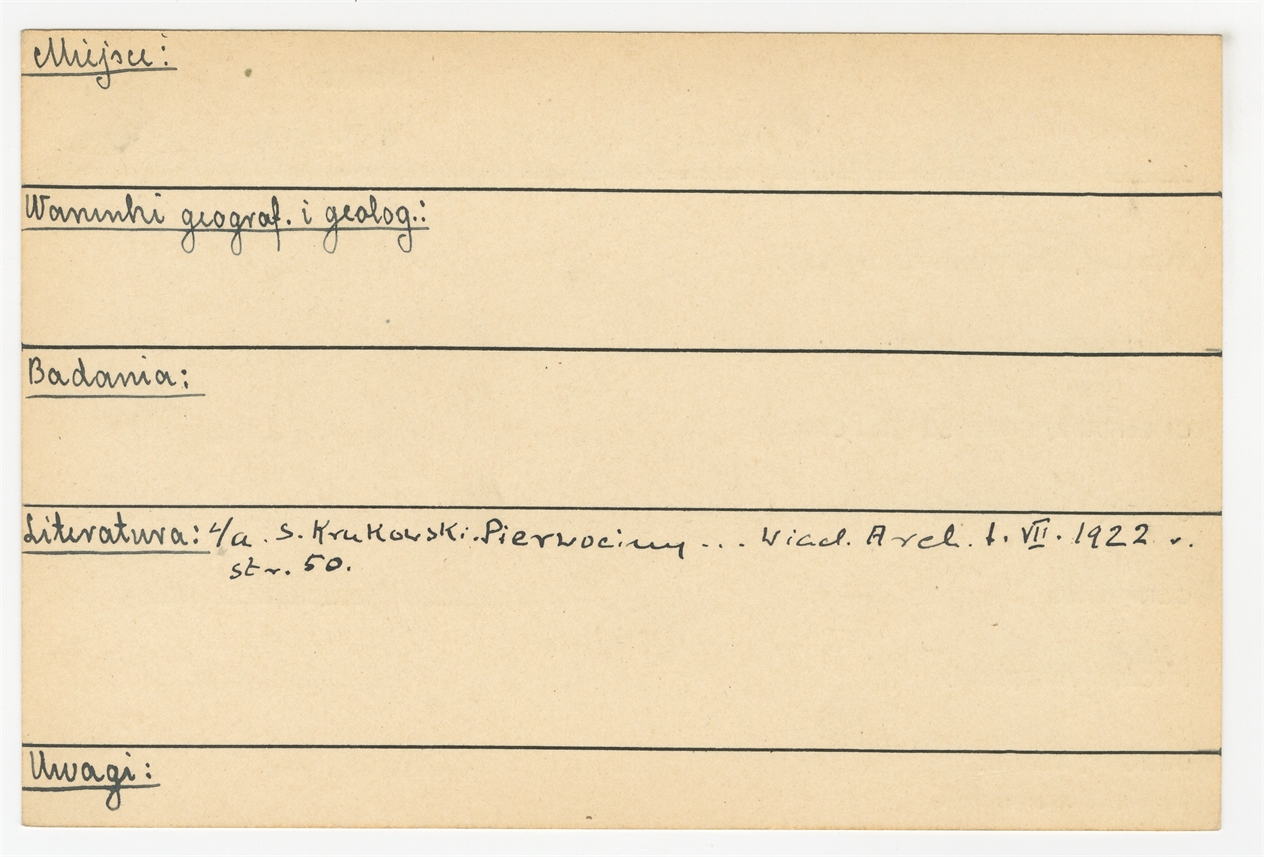 Miejsce:
Warunki geograf. i geolog.:
Badania:
Literatura: 4/a. S. Krukowski. Pierwociny ... Wiad. Arch. t. VII. 1922 r.
str. 50.
Uwagi: